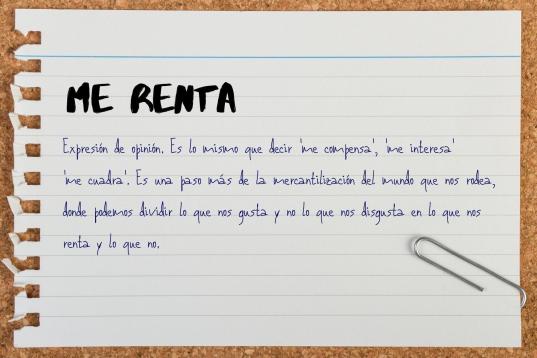 ME RENTA
Expresión de opinión. Es lo mismo que decir 'me compensa', 'me interesa'
'me cuadra'. Es una paso más de la mercantilización del mundo que nos rodea,
donde podemos dividir lo que nos gusta y no lo que nos disgusta en lo que nos
renta y lo que no.